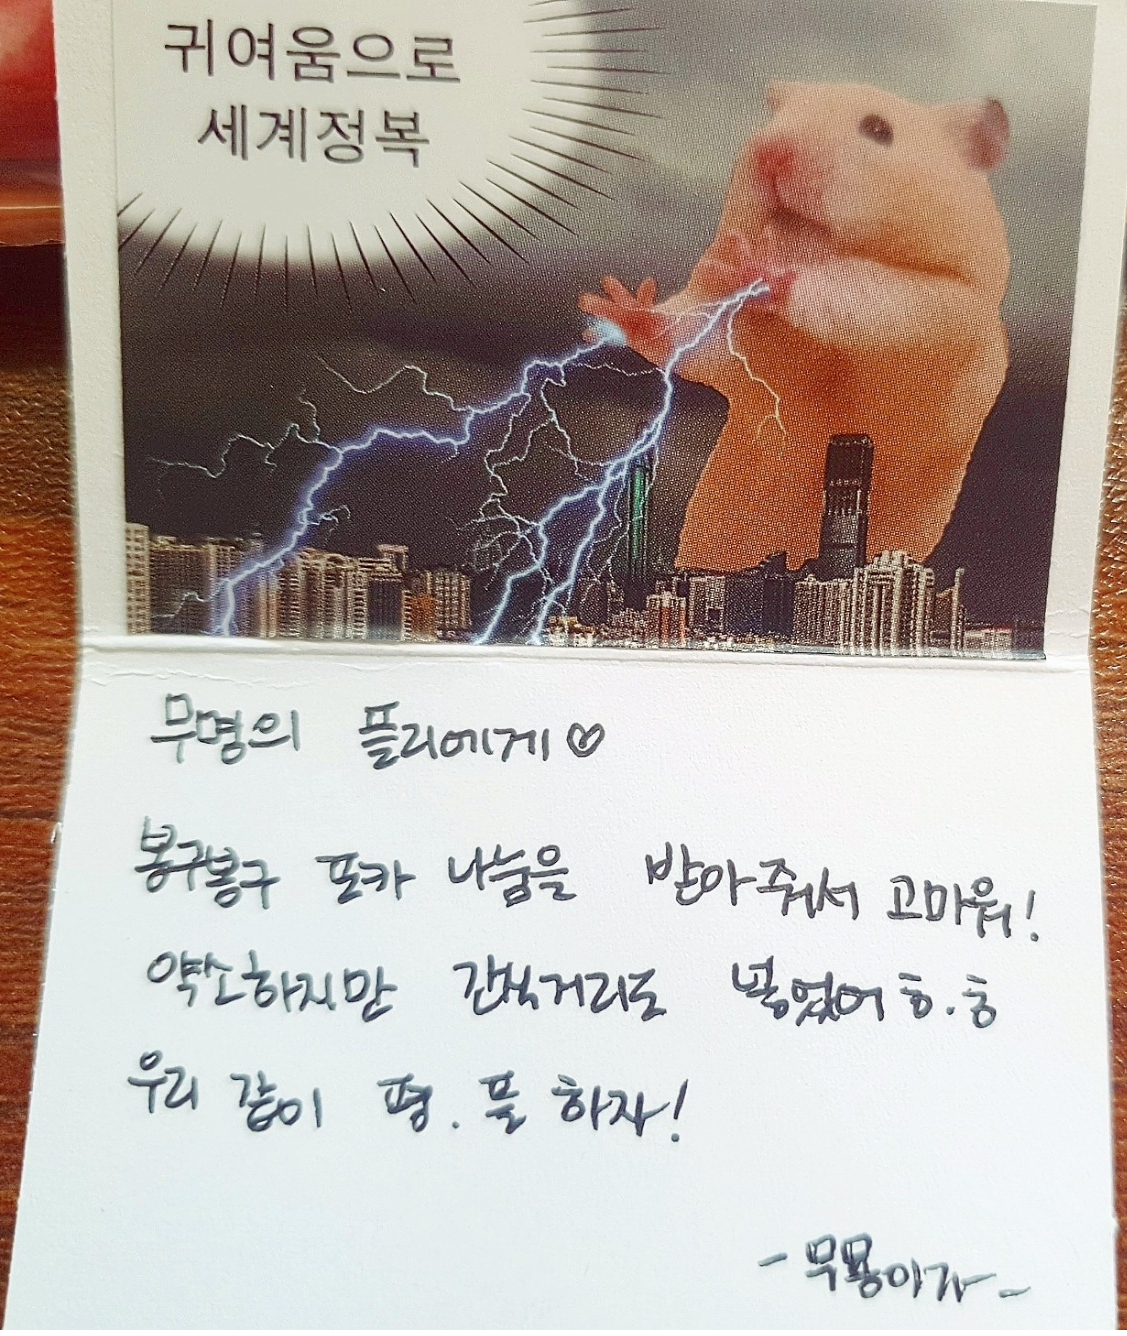 귀여움으로
세계정복
무명의 플리에게♡
봉구봉구 포카 나눔을 받아줘서 고마워!
약소하지만 간식거리도 넣었어 ㅎ.ㅎ
우리 같이 평.플 하자!